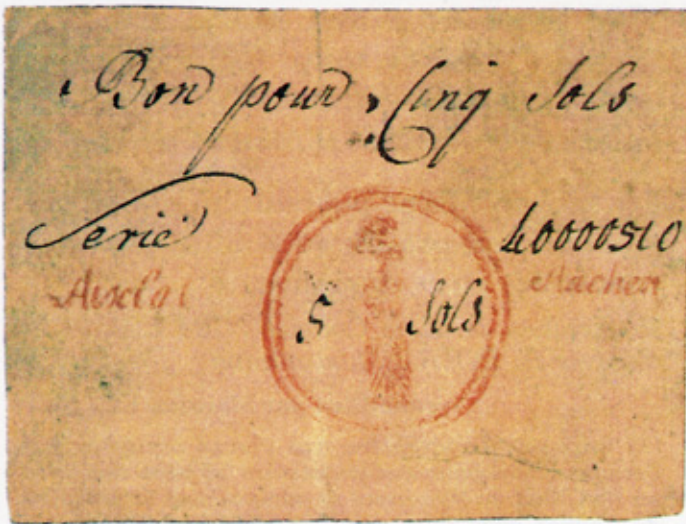 Bon pour Cinq Sols
Serie 40000510
Aachen
5 Sols